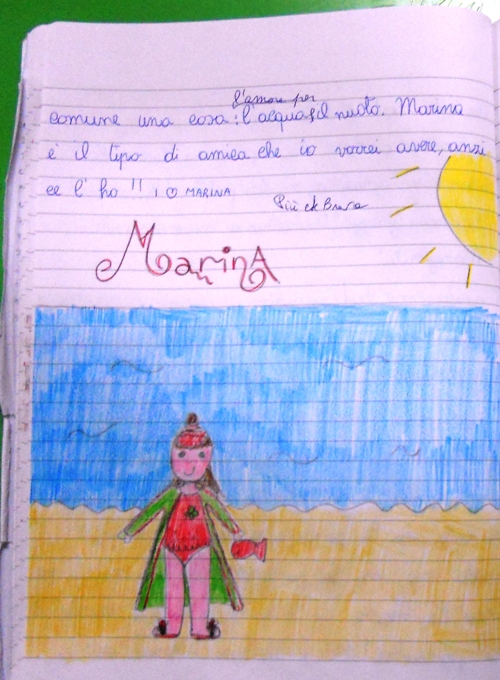 l'amore per
comune una cosa: l'acqua, il nuoto. Marina
è il tipo di amica che io vorrei avere, anzi
ce l'ho !! I ♡ MARINA
Più ck Brava
MarinA